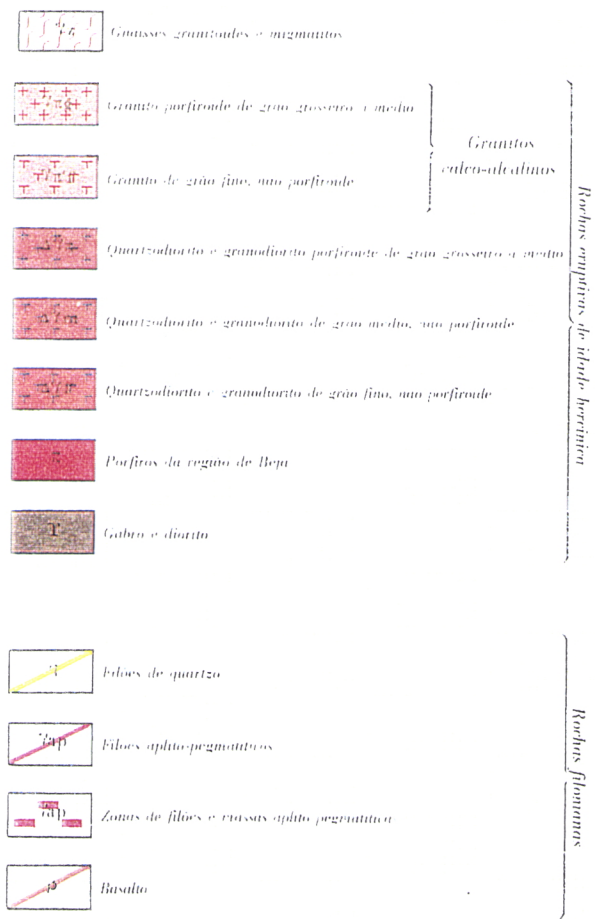 Gnaisses granitoides e migmatitos
Granito porfiroide de grão grosseiro a medio
Granitos
calco-alcalinos
Granito de grão fino, não porfiroide
Quartzodiorito e granodiorito porfiroide de grão grosseiro a medio
Quartzodiorito e granodiorito de grão medio, não porfiroide
Quartzodiorito e granodiorito de grão fino, não porfiroide
Porfiros da região de Beja
Gabro e diorito
Rochas eruptivas de idade hercinica
Filões de quartzo
γap
Filões aplito-pegmatiticos
γap
Zonas de filões e massas aplito pegmatitica
Basalto
Rochas filonianas